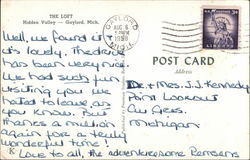 THE LOFT
Hidden Valley — Gaylord, Mich.
GAYLORD
AUG 5
1 PM
1958
MICH.
U.S. POSTAGE
3¢
LIBERTY
POST CARD
Address
Well, we found it &
it's lovely. The drive
has been very nice.
We had such fun
visiting you we
hated to leave, as
you know. But
thanks a million
again for a truly
wonderful time!
& Love to all, the adventuresome
Dr. & Mrs. J. J. Kennedy
Point Lookout
Au Gres,
Michigan